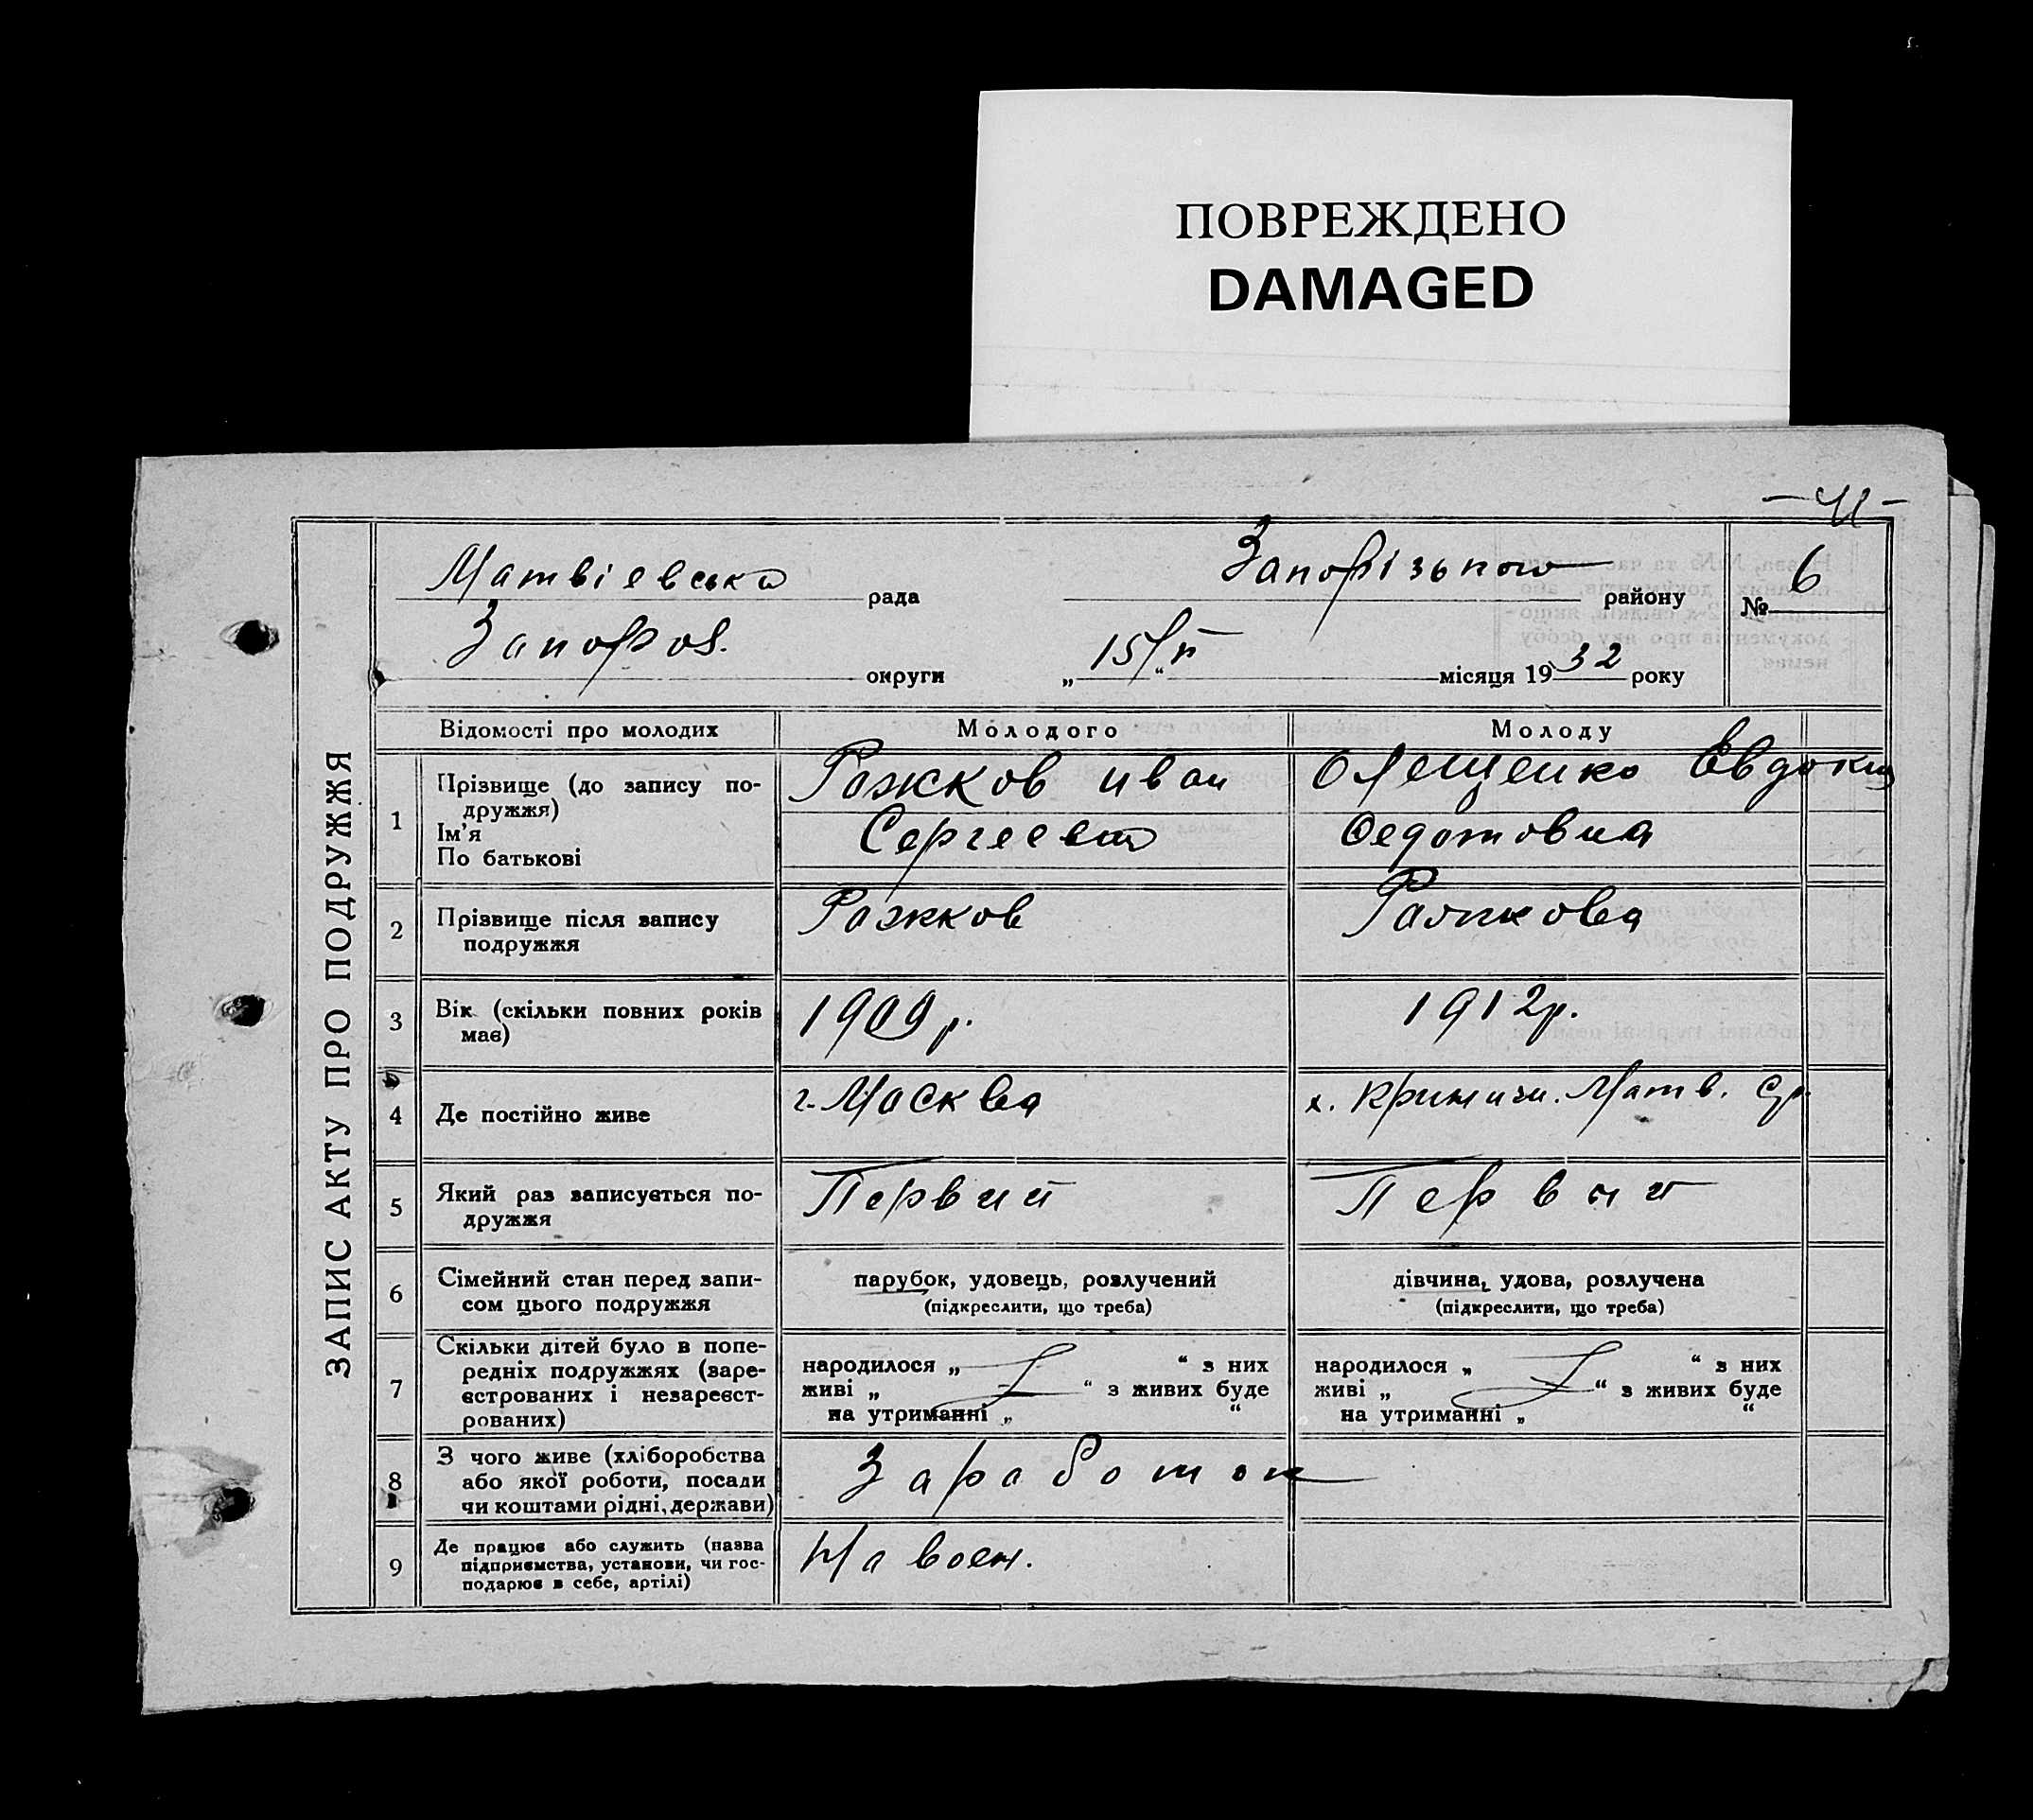 ПОВРЕЖДЕНО
DAMAGED
ЗАПИС АКТУ ПРО ПОДРУЖЖЯ
Матвіевська рада
Запорізького району
№ 6
округи
„ 15/ІІ “ місяця 1932 року
Відомості про молодих
Молодого
Молоду
1
Прізвище (до запису по-
дружжя)
Ім'я
По батькові
Ражков иван
Сергеевич
Олещенко Евдокия
Федотовна
2
Прізвище після запису
подружжя
Ражков
Ражкова
3
Вік (скільки повних років
має)
1909 р.
1912р.
4
Де постійно живе
г. Масква
х. Криничн. Матв. Ср.
5
Який раз записується по-
дружжя
Первий
Первий
6
Сімейний стан перед запи-
сом цього подружжя
парубок, удовець, розлучений
(підкреслити, що треба)
дівчина, удова, розлучена
(підкреслити, що треба)
7
Скільки дітей було в попе-
редніх подружжях (заре-
єстрованих і незареєст-
рованих)
народилося „ “ з них
живі „ “ з живих буде
на утриманні „ “
народилося „ “ з них
живі „ “ з живих буде
на утриманні „ “
8
З чого живе (хліборобства
або якої роботи, посади
чи коштами рідні, держави)
Заработок
9
Де працює або служить (назва
підприємства, установи, чи гос-
подарює в себе, артілі)
На воен.